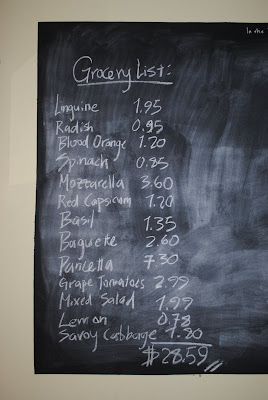 In the
Grocery List:
Linguine 1.95
Radish 0.95
Blood Orange 1.20
Spinach 0.85
Mozzarella 3.60
Red Capsicum 1.20
Basil 1.35
Baguette 2.60
Pancetta 7.30
Grape Tomatoes 2.99
Mixed Salad 1.99
Lemon 0.78
Savoy Cabbage 1.80
$28.59